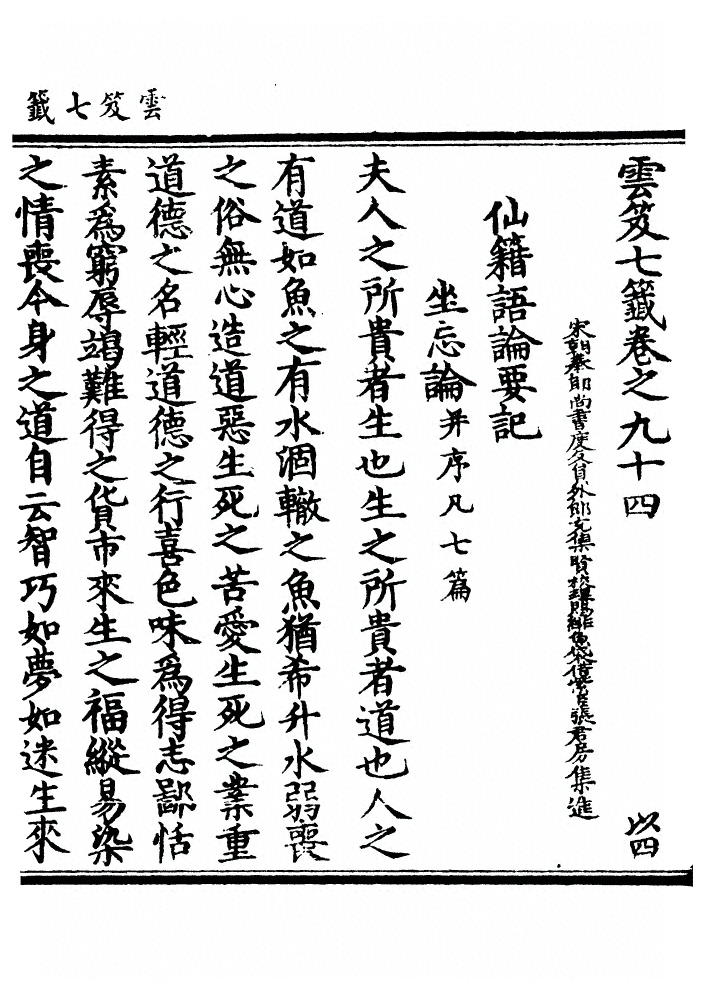 雲笈七籤
雲笈七籤卷之九十四
以四
宋朝奉郎尚書度支員外郎充集賢校理賜緋魚袋借紫臣張君房集進
仙籍語論要記
坐忘論并序凡七篇
夫人之所貴者生也生之所貴者道也人之
有道如魚之有水涸轍之魚猶希升水弱喪
之俗無心造道惡生死之苦愛生死之業重
道德之名輕道德之行喜色味爲得志鄙恬
素爲窮辱竭難得之貨市來生之福縱易染
之情喪今身之道自云智巧如夢如迷生來